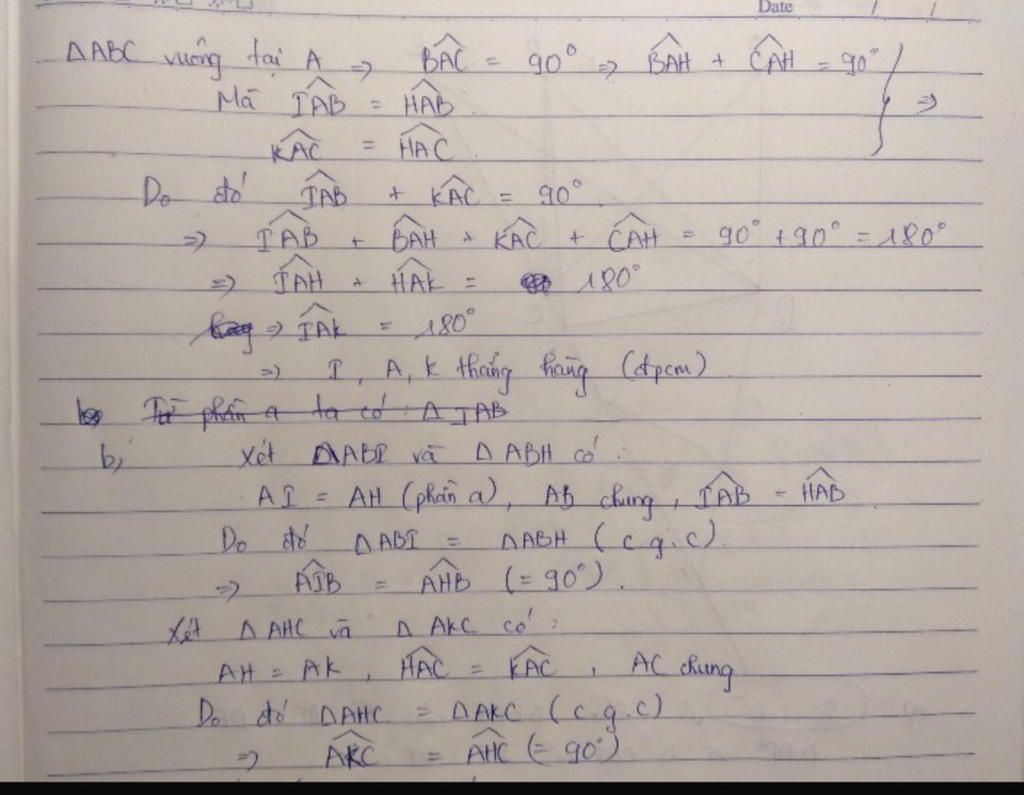 Date / /
ΔABC vuông tại A => BÂC = 90° => BÂH + CÂH = 90°
Mà IÂB = HÂB =>
KÂC = HÂC.
Do đó IÂB + KÂC = 90°.
=> IÂB + BÂH + KÂC + CÂH = 90° + 90° = 180°
=> IÂH + HÂK = 180°
=> IÂK = 180°
=> I, A, K thẳng hàng (đpcm)
Từ phần a ta có: Δ IAB
b, Xét ΔABI và ΔABH có:
AI = AH (phần a), AB chung, IÂB = HÂB
Do đó ΔABI = ΔABH (c.g.c)
=> AÎB = AĤB (= 90°).
Xét ΔAHC và ΔAKC có:
AH = AK, HÂC = KÂC, AC chung
Do đó ΔAHC = ΔAKC (c.g.c)
=> AK̂C = AĤC (= 90°)